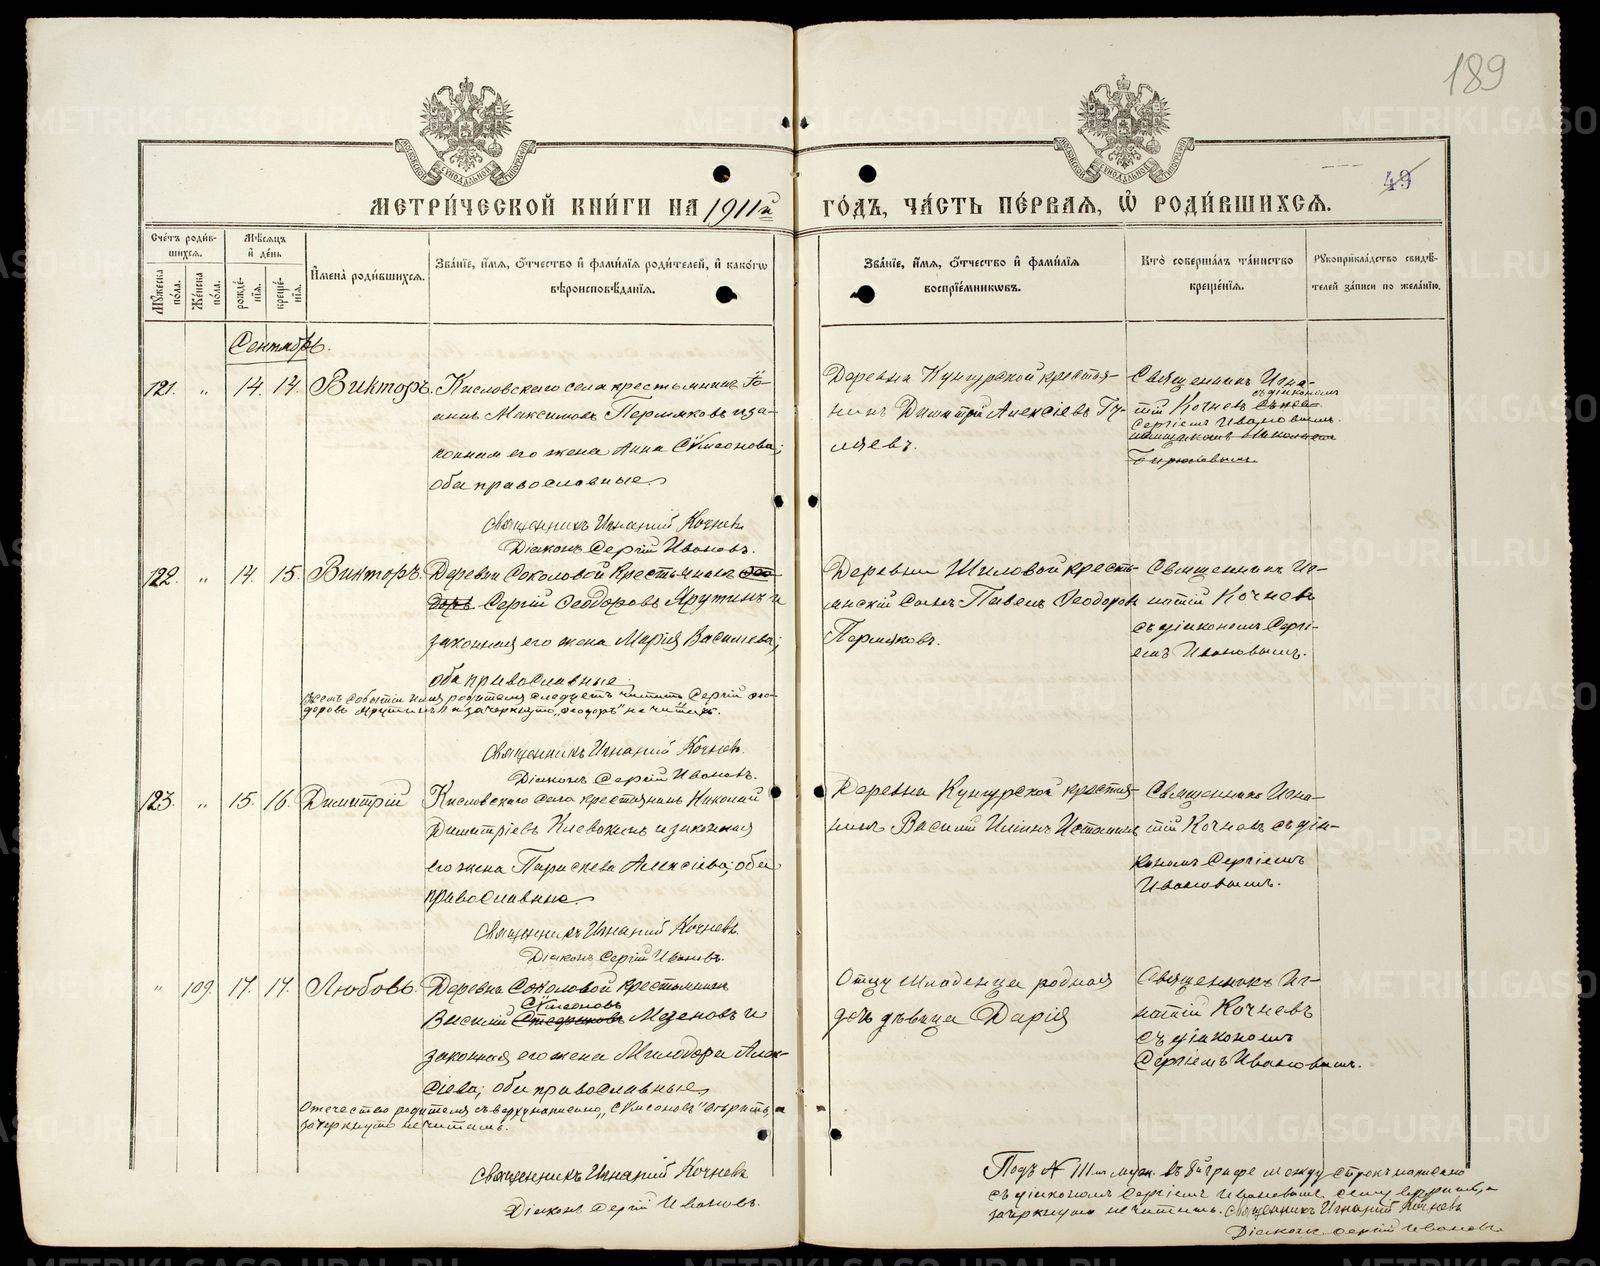 189
49
МЕТРИ́ЧЕСКОЙ КНИ́ГИ НА 1911й ГО́ДЪ, ЧА́СТЬ ПЕ́РВАЯ, Ѽ РОДИ́ВШИХСЯ.
Сче́тъ роди́в-
шихся.
Мѣ́сяцъ
и҆ де́нь
Мꙋ́жеска
по́ла.
Же́нска
по́ла.
рожде́-
нїя.
креще́-
нїя.
И҆мена̀ роди́вшихся.
Зва́нїе, и҆́мя, ѻ҆́тчество и҆ фами́лїя роди́телей, и҆ како́гѡ
вѣроисповѣ́данїя.
Зва́нїе, и҆́мя, ѻ҆́тчество и҆ фами́лїя
воспрїе́мникѡвъ.
Кто̀ соверша́лъ та́инство
креще́нїя.
Рꙋкоприкла́дство свидѣ́-
телей за́писи по жела́нїю.
Сентябрь.
121. " 14. 14. Викторъ.
Кисловскаго села крестьянинъ Іо-
аннъ Максимовъ Пермяковъ и за-
конная его жена Анна Сѵмеонова;
оба православные
Священникъ Игнатій Кочневъ
Діаконъ Сергій Ивановъ.
Деревни Кунгурской крестья-
нинъ Димитрій Алексіевъ
Священникъ Игна-
съ діакономъ
тій Кочневъ
Сергіемъ Ивановымъ.
122. " 14. 15. Викторъ.
Деревни Соколовой крестьянинъ Ѳео-
доръ Сергій Ѳеодоровъ Ярутинъ и
законная его жена Марія Васильева;
оба православные
Въ семъ событіи имя родителя слѣдуетъ читать Сергій Ѳео-
доровъ Ярутинъ а зачеркнуто „Ѳеодоръ" не читать.
Священникъ Игнатій Кочневъ.
Діаконъ Сергій Ивановъ.
Деревни Шиловой кресть-
янскій сынъ Павелъ Ѳеодоровъ
Пермяковъ.
Священникъ Иг-
натій Кочневъ
съ діакономъ Сергі-
емъ Ивановымъ.
123. " 15. 16. Димитрій
Кисловскаго села крестьянинъ Николай
Димитріевъ Клевакинъ и законная
его жена Параскева Алексіева; оба
православные
Священникъ Игнатій Кочневъ.
Діаконъ Сергій Ивановъ.
Деревни Кунгурской крестья-
нинъ Василій Ильинъ Истоминъ
Священникъ Игна-
тій Кочневъ съ діа-
кономъ Сергіемъ
Ивановымъ.
" 109. 17. 17. Любовь.
Деревни Соколовой крестьянинъ
Сѵмеоновъ
Василій Стефановъ Мезеновъ и
законная его жена Милодора Алек-
сіева; оба православные
Отчество родителя сверху написано „Сѵмеоновъ" вѣрить, а
зачеркнуто не читать.
Священникъ Игнатій Кочневъ
Діаконъ Сергій Ивановъ.
Отцу младенца родная
дочь дѣвица Дарія
Священникъ Иг-
натій Кочневъ
съ діакономъ
Сергіемъ Ивановымъ.
Подъ № 111м муж. въ графѣ между строкъ написано
съ діакономъ Сергіемъ Ивановымъ сему вѣрить, а
зачеркнуто не читать. Священникъ Игнатій Кочневъ
Діаконъ Сергій Ивановъ
METRIKI.GASO-URAL.RU